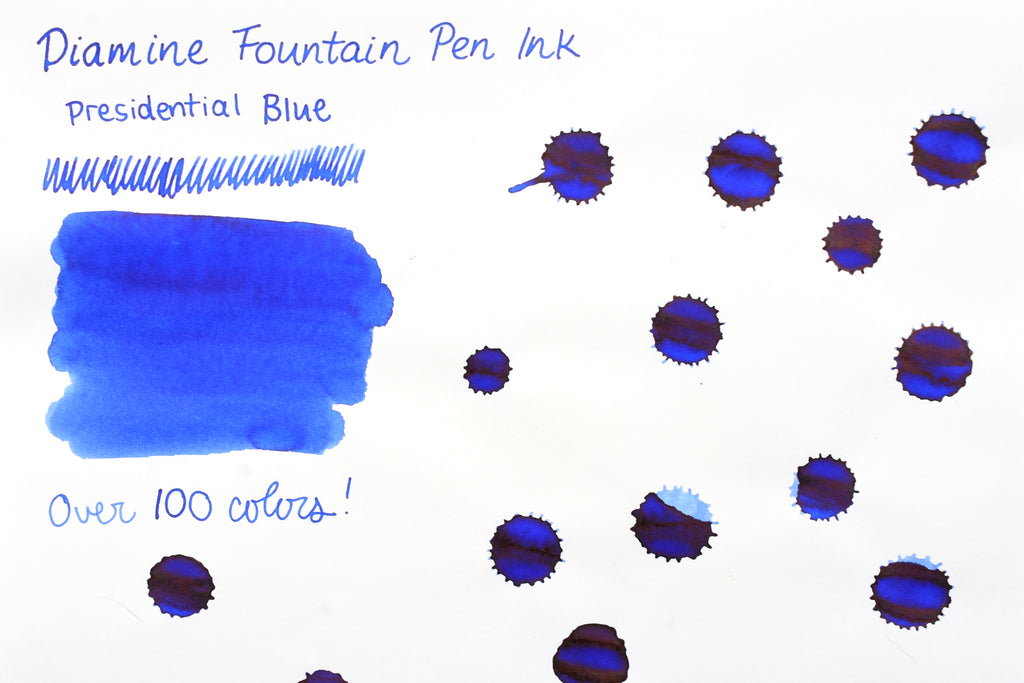 Diamine Fountain Pen Ink
Presidential Blue
Over 100 colors!